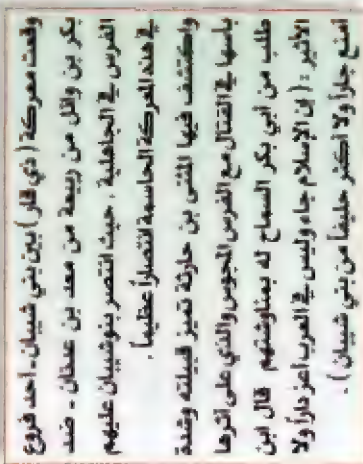 وقعت معركة ( ذي قار ) بين بني شيبان - أحد فروع
بكر بن وائل من ربيعة من معد بن عدنان - ضد
الفرس في الجاهلية ، حيث انتصر بنو شيبان عليهم
في هذه المعركة الحاسمة انتصاراً عظيماً .
واكتشف فيها المثنى بن حارثة تميز قبيلته وشدة
بأسها في القتال مع الفرس المجوس والذي على أثرها
طلب من أبي بكر السماح له بمناوشتهم قال ابن
الأثير : ( إن الإسلام جاء وليس في العرب أعز داراً ولا
أمنع جاراً ولا أكثر حليفاً من بني شيبان ) .